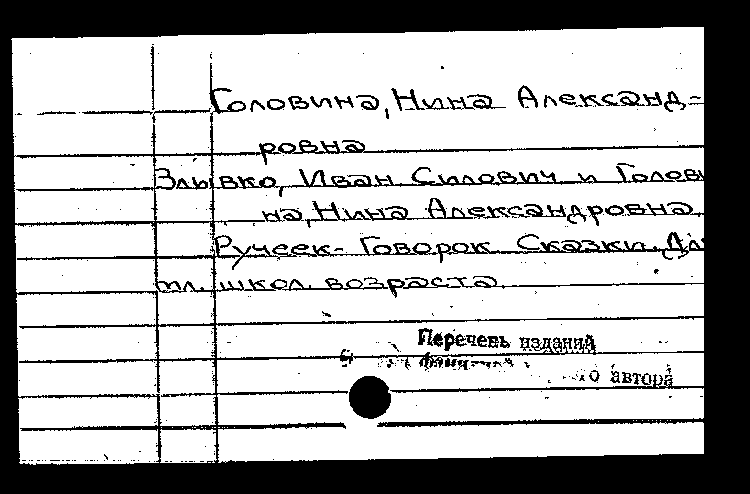 Головина, Нина Александ-
ровна
Злывко, Иван Силович и Голов
на, Нина Александровна.
Ручеек- Говорок. Сказки. Дл
мл. школ. возраста
Перечень изданий
автора